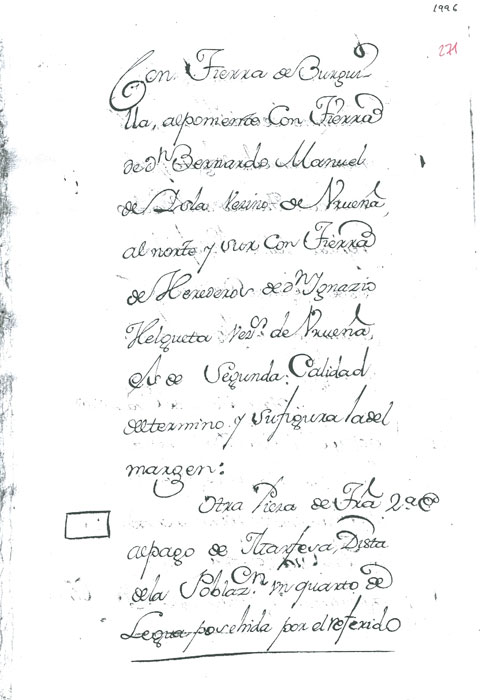 1996
271
Con Tierra de Burgui
lla, alponiente Con Tierra
de dn Bernardo Manuel
de Dola Vecino de Vrueña,
al norte y sur Con Tierra
de Herederos de dn Ygnazio
Helgueta Vezo. de Vrueña,
Es de Segunda Calidad
del termino y su figura la del
margen:
Otra Pieza de Tra. 2a. C
al pago de Dista
de la Poblazon. Vn quarto de
Legua posehida por el referido